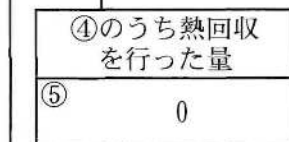 ④のうち熱回収
を行った量
⑤
0